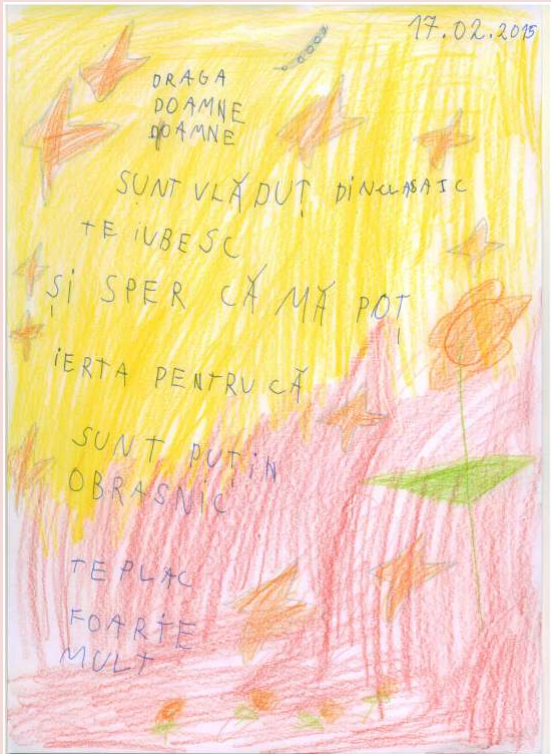 17.02.2015
DRAGA
DOAMNE
DOAMNE
SUNT VLĂDUȚ DINCLASAIC
TE iUBESC
Și SPER CĂ MĂ POȚ
i
iERTA PENTRU CĂ
SUNT PUȚiN
OBRASNiC
TE PLAC
FOARTE
MULT